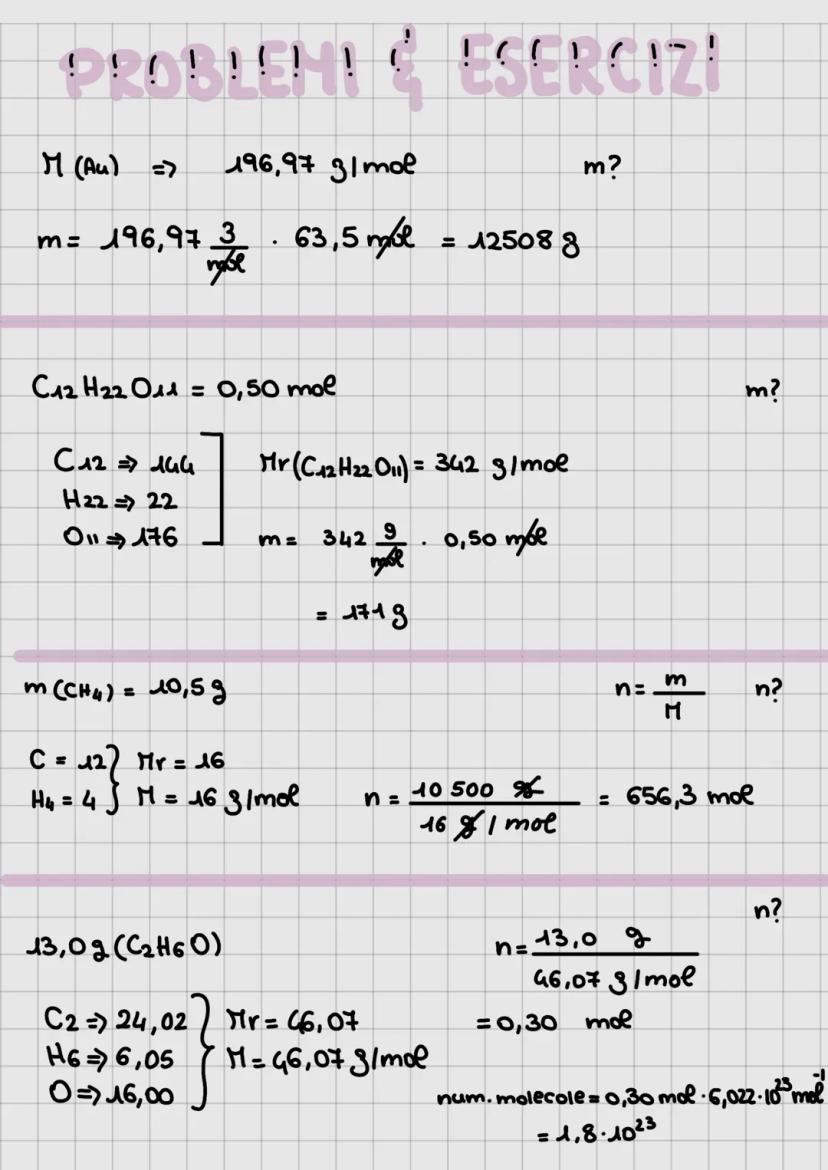 PROBLEMI & ESERCIZI
M (Au) => 196,97 g/mol m?
m = 196,97 g/mol · 63,5 mol = 12508 g
C12 H22 O11 = 0,50 mol m?
C12 => 144
H22 => 22
O11 => 176
Mr (C12H22O11) = 342 g/mol
m = 342 g/mol · 0,50 mol
= 171 g
m (CH4) = 10,5 g n = m/M n?
C = 12 Mr = 16
H4 = 4 M = 16 g/mol n = 10 500 g / 16 g/mol = 656,3 mol
n?
13,0 g (C2H6O) n = 13,0 g / 46,07 g/mol
C2 => 24,02 Mr = 46,07 = 0,30 mol
H6 => 6,05 M = 46,07 g/mol
O => 16,00
num. molecole = 0,30 mol · 6,022 · 10^23 mol^-1
= 1,8 · 10^23